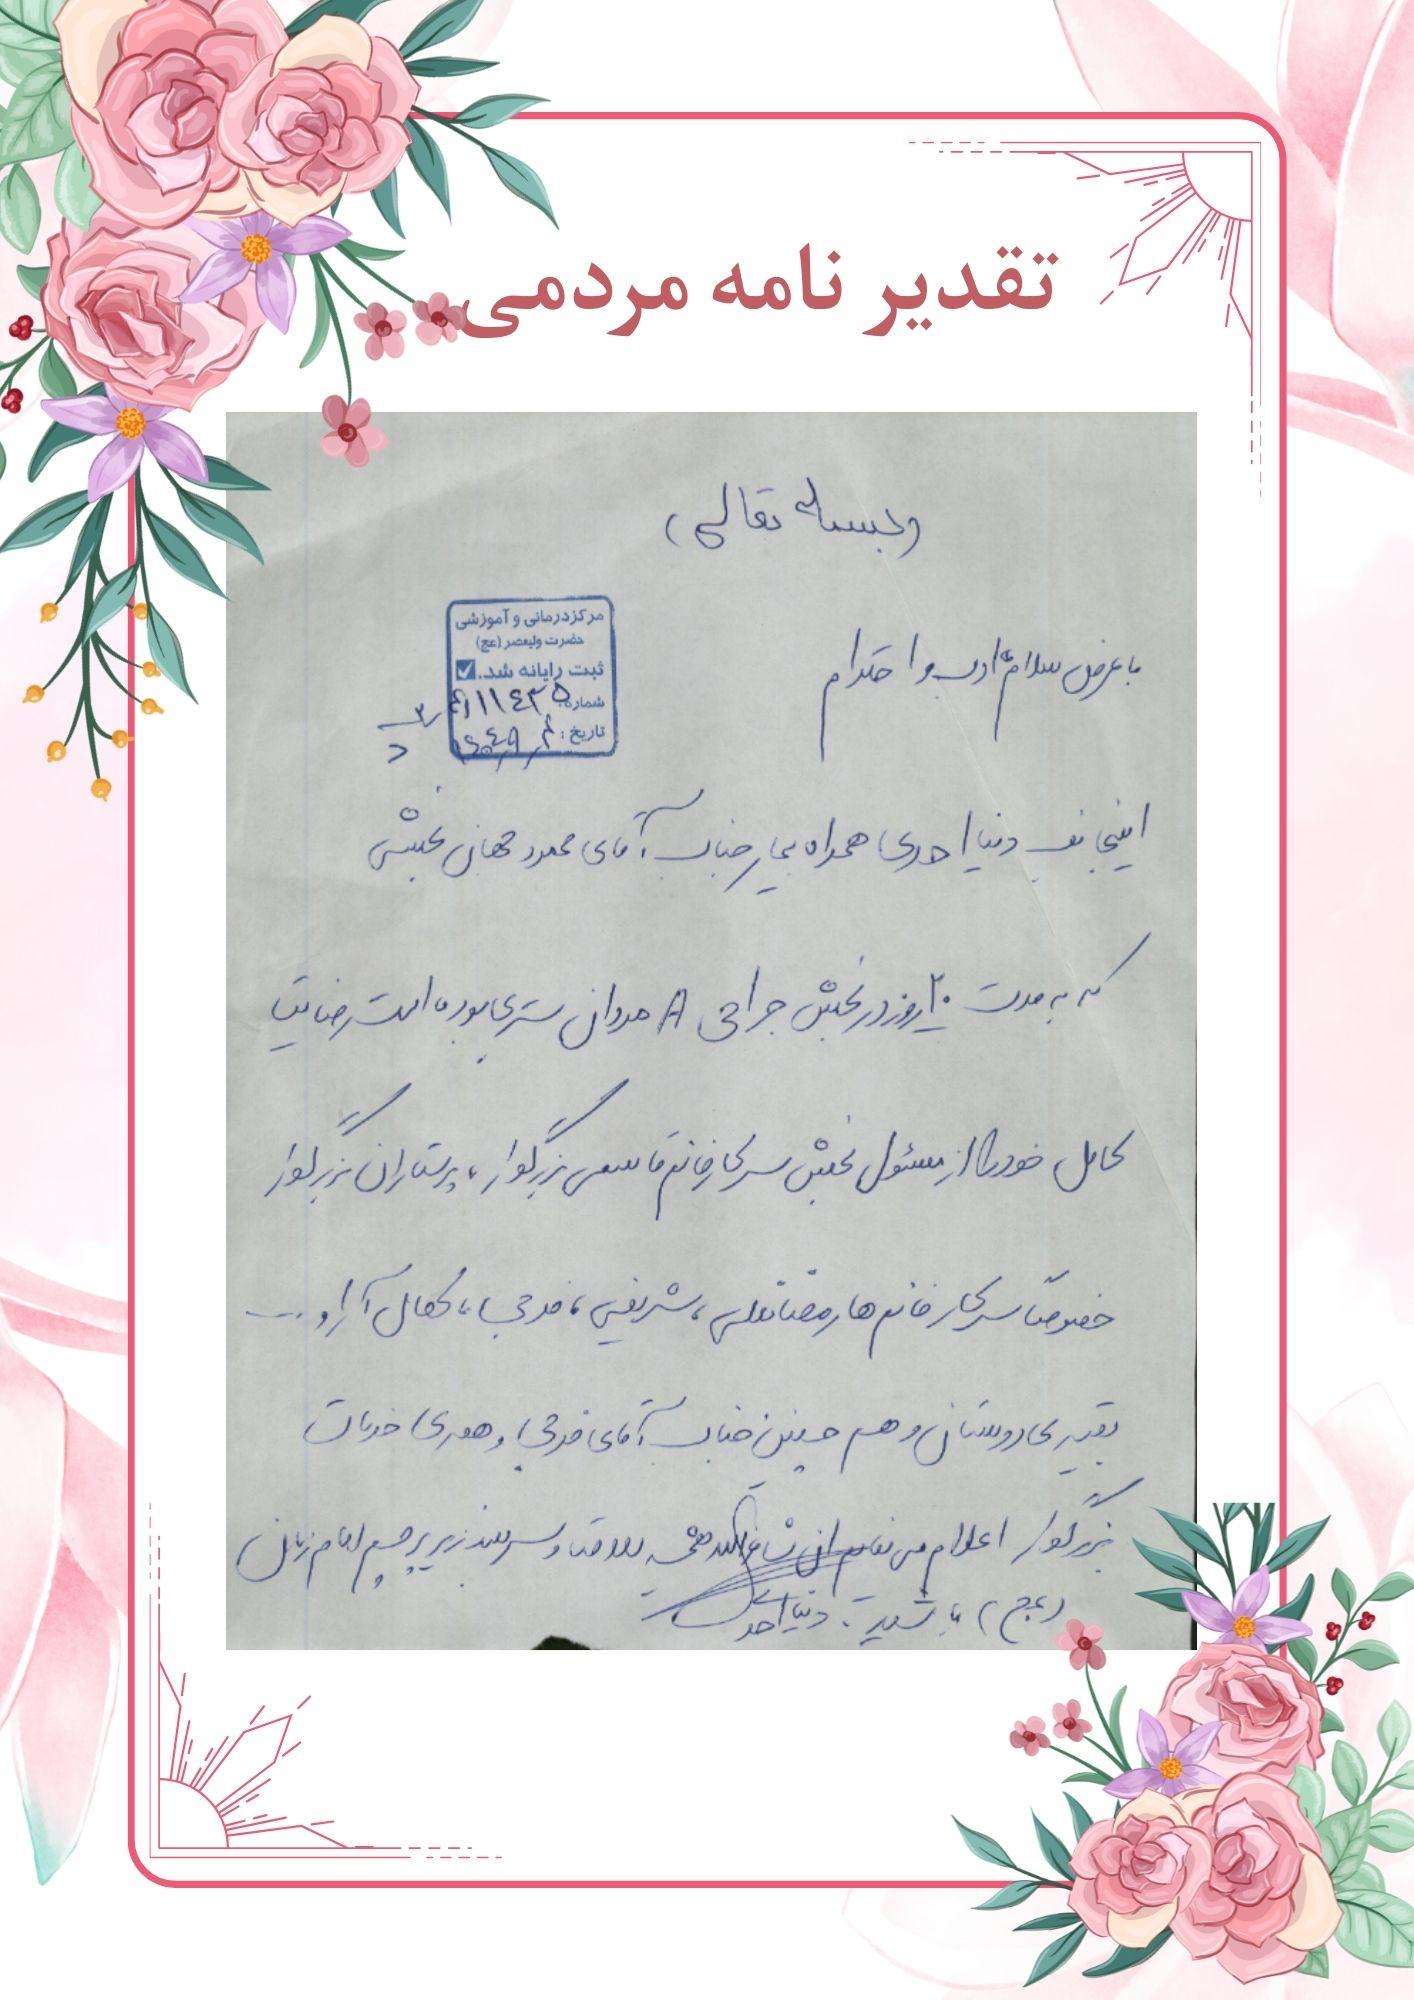 تقدیر نامه مردمی
(بسمه تعالی)
مرکز درمانی و آموزشی
حضرت ولیعصر (عج)
ثبت رایانه شد.
شماره:
تاریخ:
با عرض سلام و ادب و احترام
اینجانب دنیا احدی همراه بیمار جناب آقای محمود جهان بخش
که به مدت ۲۰ روز در بخش جراحی A مردان بستری بوده است رضایت
کامل خود را از مسئول بخش سرکار خانم قاسمی بزرگوار، پرستاران بزرگوار
خصوصا سرکار خانم ها رمضانعلی، شریفی، فرجی، کمال آرا و ....
تقدیری دوستانی و هم چنین جناب آقای فرجی و همه ی خدمات
بزرگوار اعلام می نمایم و سربلند زیر پرچم امام زمان
(عج) باشید. دنیا احدی